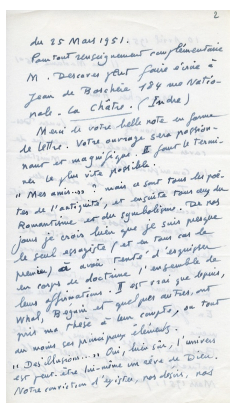 2
du 25 Mars 1951.
Pour tout renseignement complémentaire
M. Descaves peut faire écrire à
Jean de Boschère 184 rue Natio-
nale. La Châtre. (Indre)
Merci de votre belle note en forme
de lettre. Votre ouvrage sera passion-
nant et magnifique. Il faut le termi-
ner le plus vite possible.
"Mes amis...." ? mais ce sont tous les poè-
tes de l'antiquité, et ensuite tous ceux du
Romantisme et du symbolisme. De nos
jours je crois bien que je suis presque
le seul essayiste (et en tous cas le
premier) à avoir tenté d'esquisser
en corps de doctrine l'ensemble de
leurs affirmations. Il est vrai que depuis,
Whal, Béguin et quelques autres, ont
pris ma thèse à leur compte, ou tout
au moins ses principaux éléments.
"Des illusions...." Oui, bien sûr, l'univers
est peut-être lui-même un rêve de Dieu.
Notre conviction d'exister, nos désirs, nos